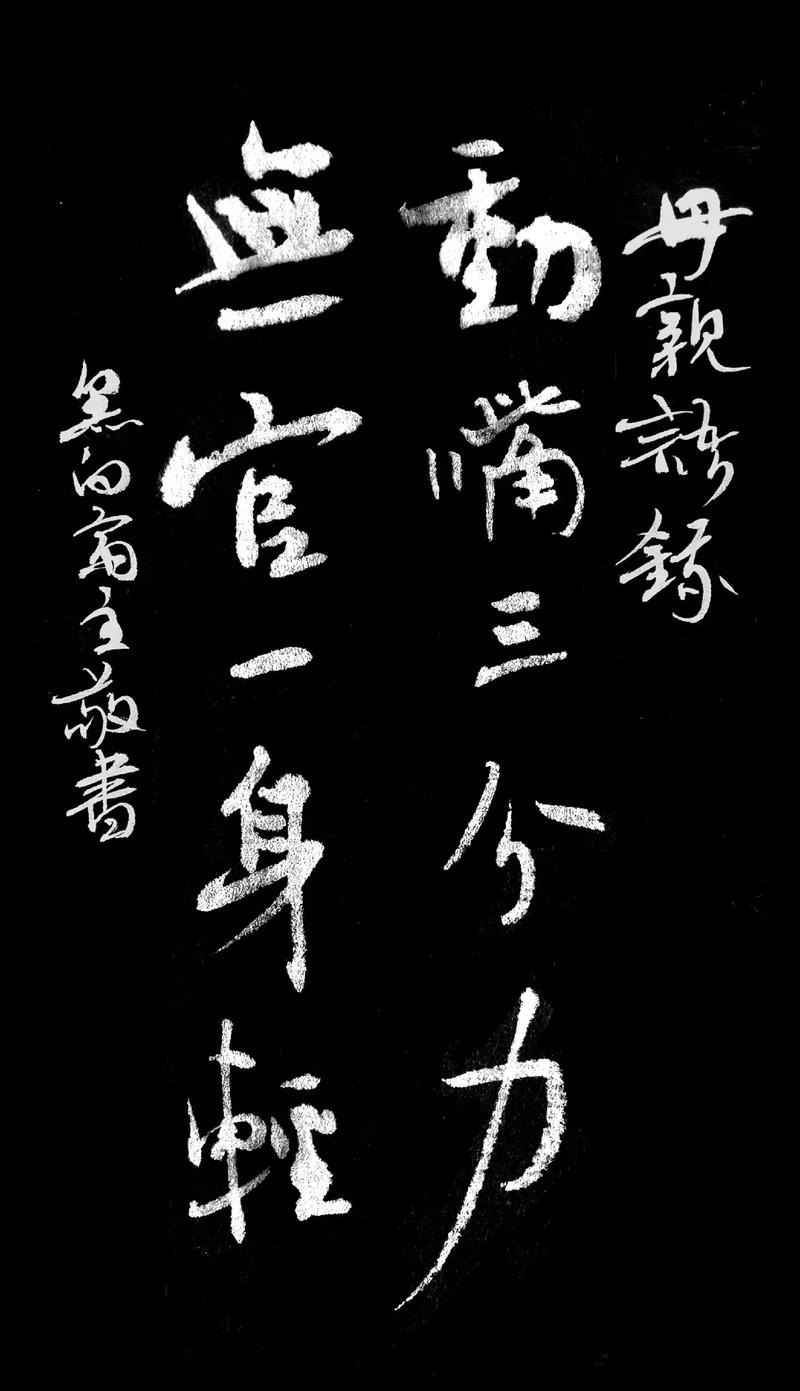 母親語錄
動嘴三分力
無官一身輕
黑白齋主敬書